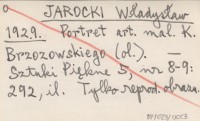 JAROCKI Władysław
1929. Portret art. mal. K.
Brzozowskiego (ol.). —
Sztuki Piękne 5, nr 8-9:
292, il. Tylko reprod. obrazu.